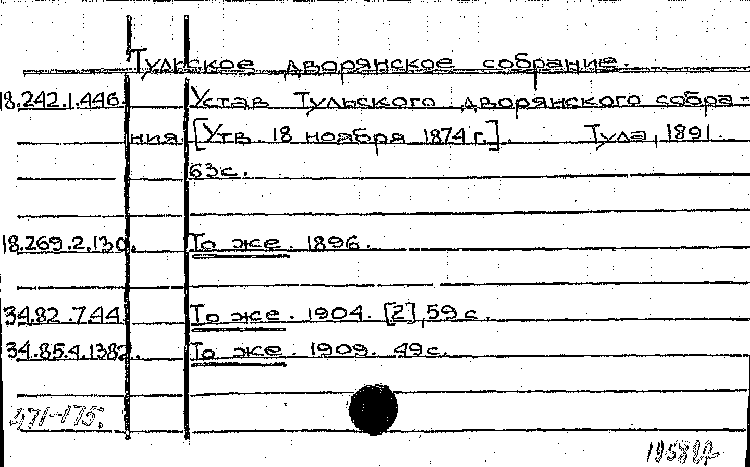 Тульское дворянское собрание.
18.242.1.446. Устав Тульского дворянского собра-
ния. [Утв. 18 ноября 1874 г.]. Тула, 1891.
63 с.
18.269.2.130. То же. 1896.
34.82.7.44. То же. 1904. [2], 59 с.
34.85.4.1382. То же. 1909. 49 с.